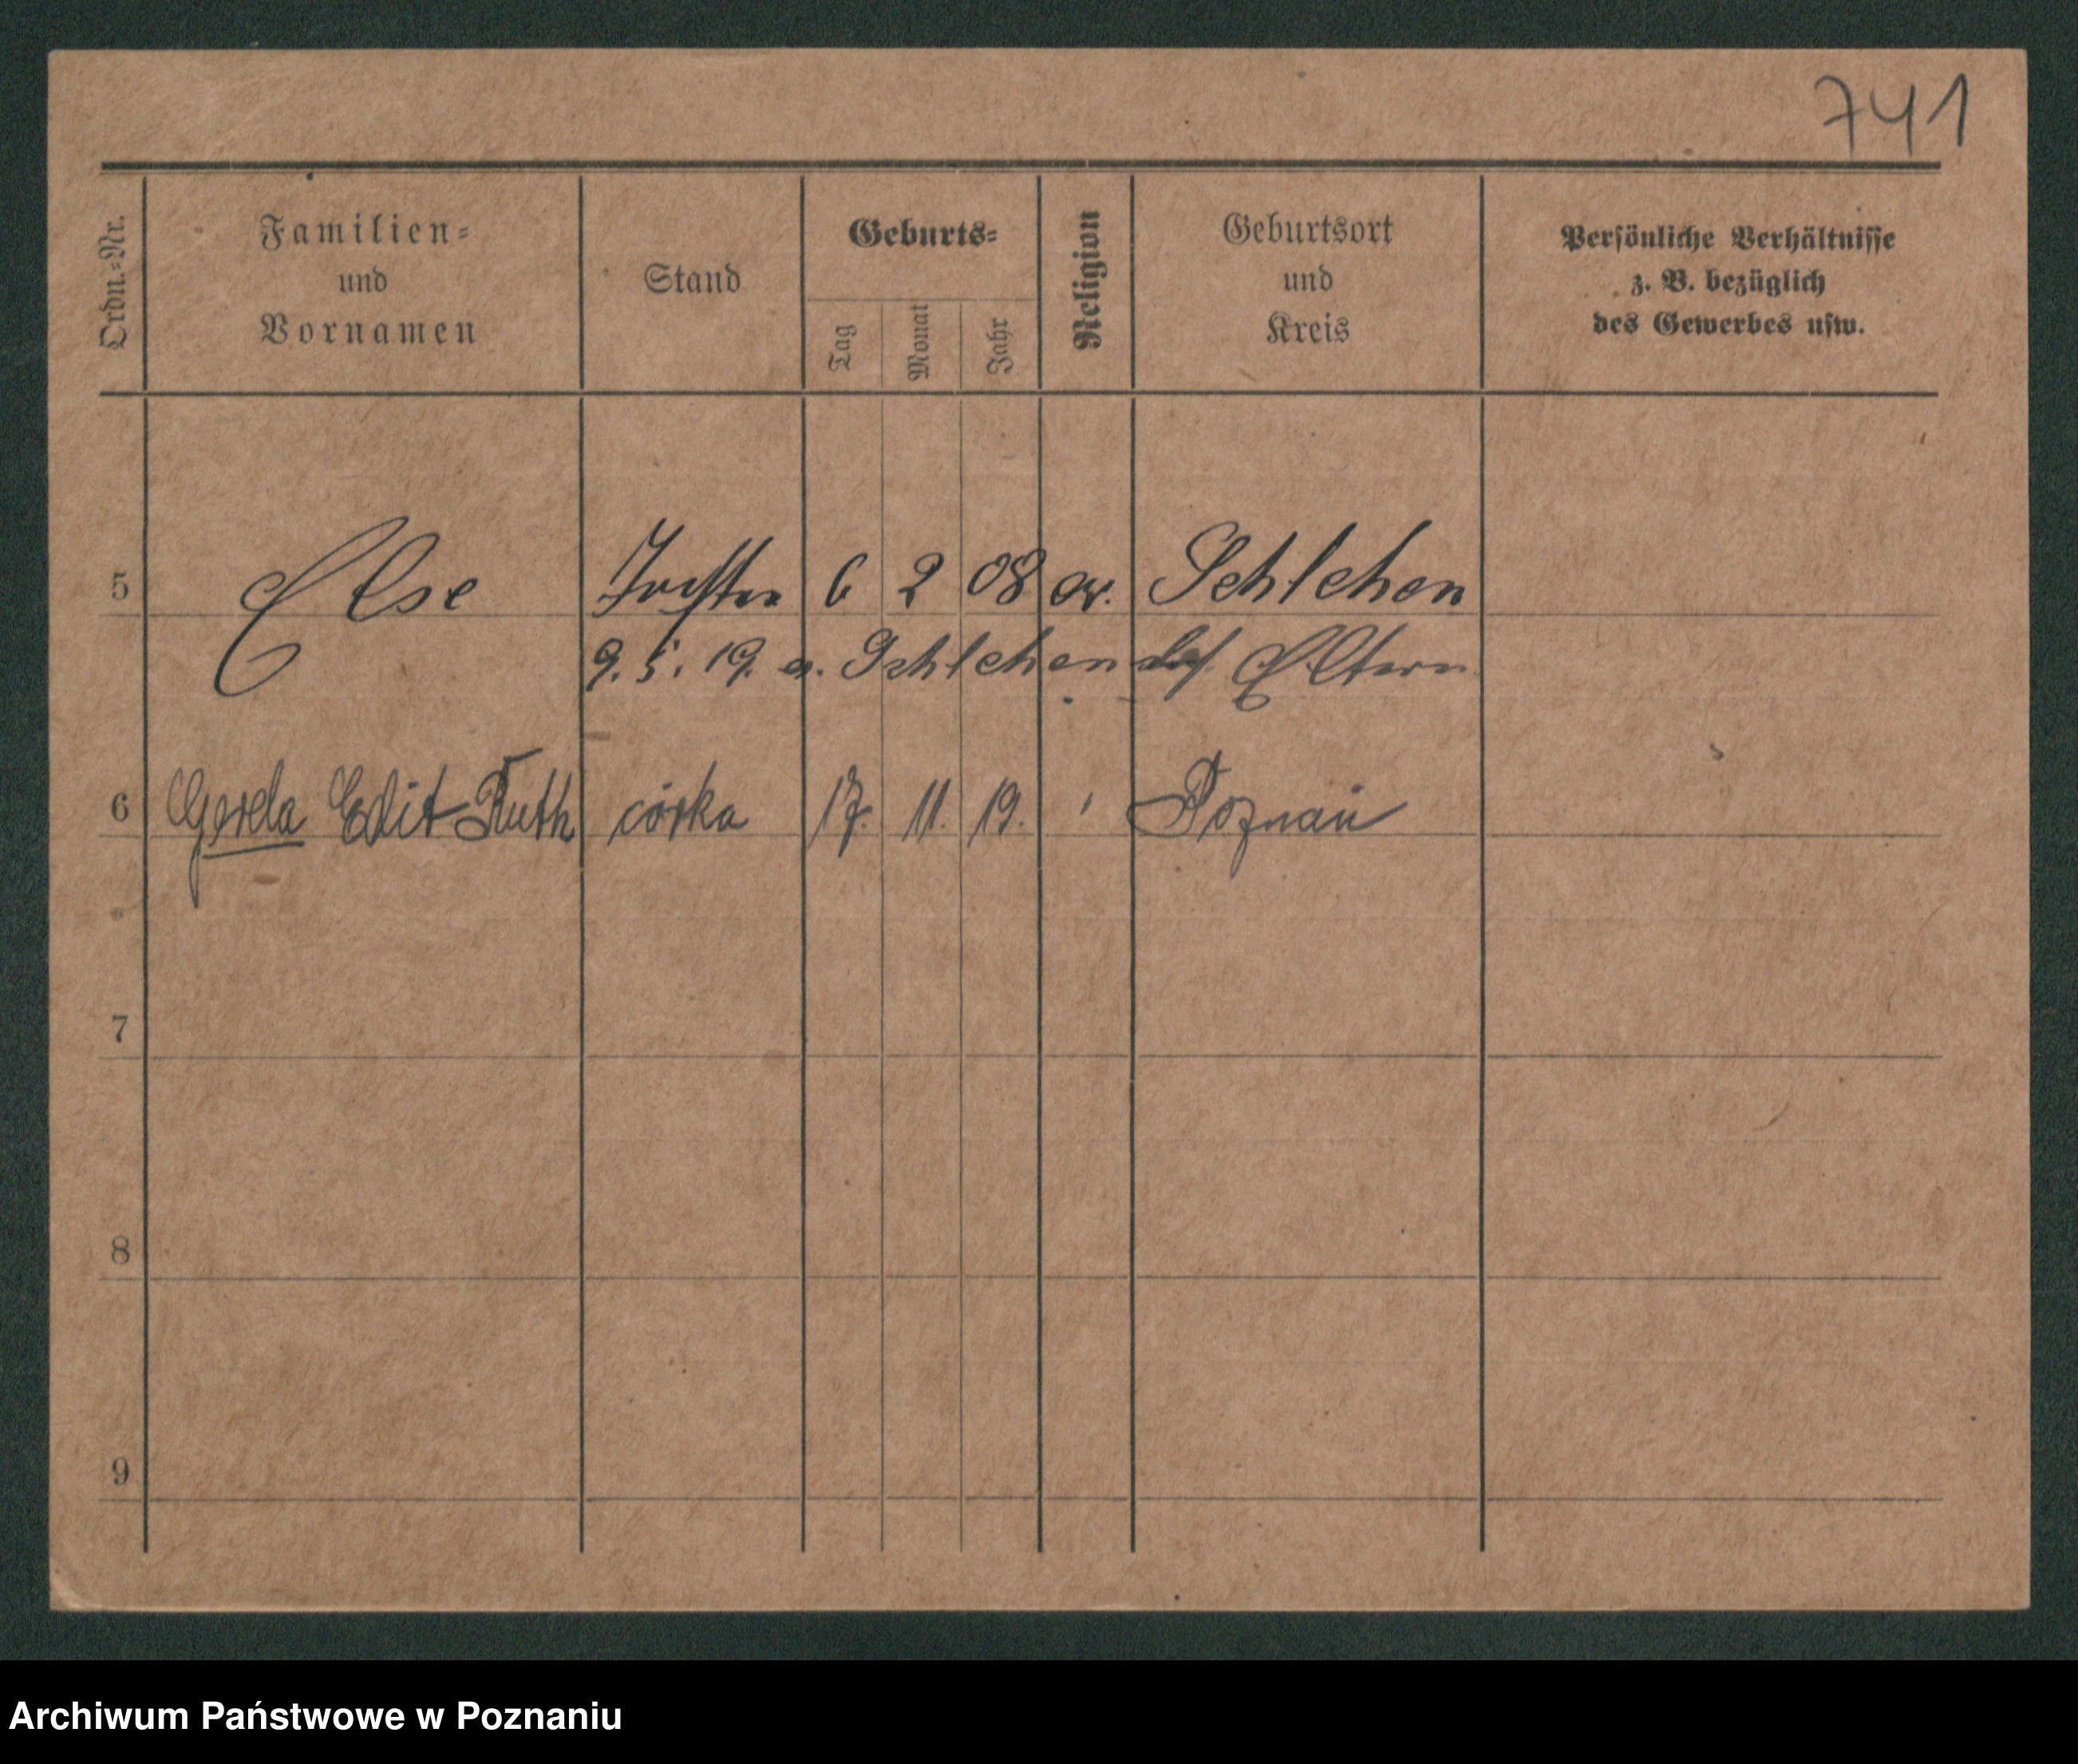 741
Ordn.-Nr.
Familien-
und
Vornamen
Stand
Geburts-
Tag
Monat
Jahr
Religion
Geburtsort
und
Kreis
Persönliche Verhältnisse
z. B. bezüglich
des Gewerbes usw.
5 Else 6 2 08 ev. Schlehen
9. 5. 19. n. Schlehen Eltern
6 Gerda Edit Ruth córka 17. 11. 19. Poznań
7
8
9
Archiwum Państwowe w Poznaniu